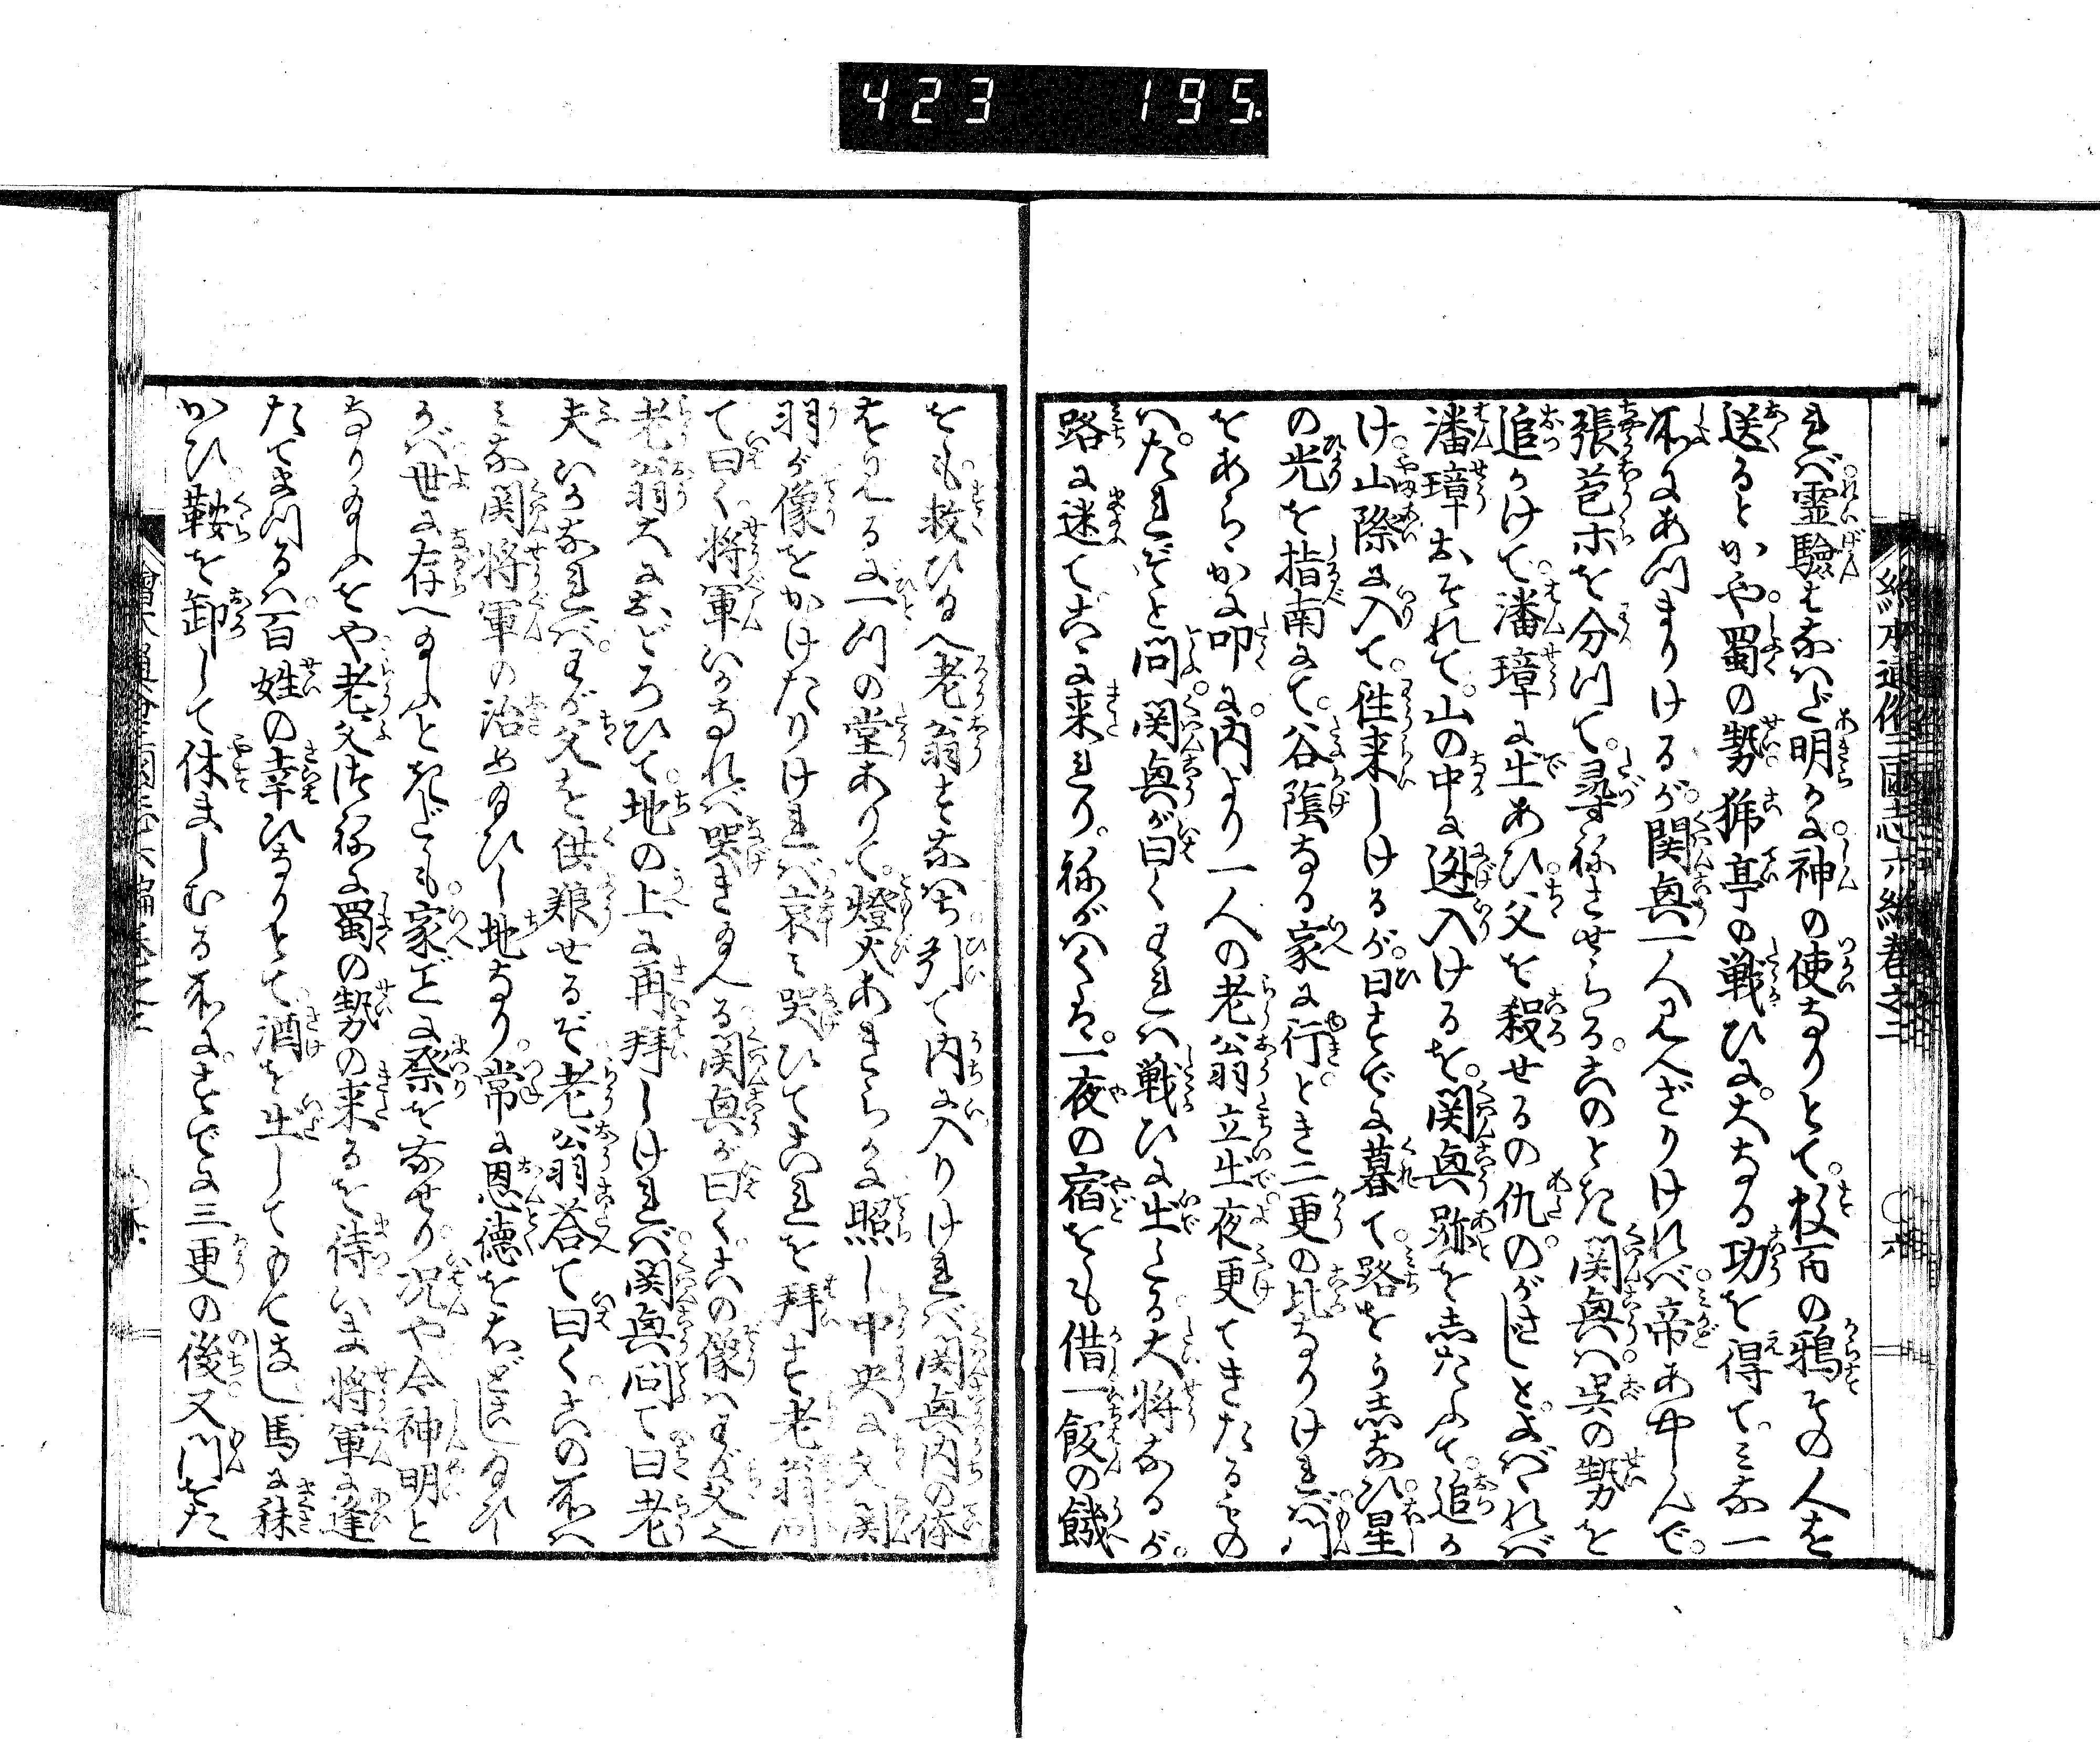 423 195.
絵本通俗三國志六編巻之二
六
れバ霊驗もなハだ明かに神の使なりとて。数百の鴉その人を
送るとかや。蜀の勢猇亭の戦ひに。大なる功を得て。ミな一
所にあつまりけるが。関興一人見へざりけれバ。帝あやしんで。
張苞ホを分つて。尋ねさせらる。このとき関興ハ呉の勢を
追かけて。潘璋に出あひ。父を殺せるの仇。のがさじとよバヽれバ
潘璋おそれて。山の中に迯入けるを。関興跡を志たふて。追か
け。山際に入て。往来しけるが。日すでに暮て。路をうしなひ星
の光を指南にて。谷陰なる家に行。とき二更の比なりけれバ。門
をあらヽかに叩に。内より一人の老翁立出。夜更てきたるもの
ハ。たれぞと問。関興が曰くわれハ戦ひに出たる大将なるが。
路に迷てこヽに来れり。ねがハくハ。一夜の宿をも借一飯の餓
をも救ひ玉へ老翁すなハち引て内に入りけれバ関興内の体
をみるに一つの堂ありて。燈火あきらかに照し中央に父関
羽が像をかけたりけれバ哀ミ哭ひてこれを拝す老翁問
て曰く将軍いかなれバ哭き玉へる関興が曰く。この像ハわが父也
老翁大におどろひて。地の上に再拝しけれバ。関興問て曰老
夫いかなれバ。わが父を供粮せるぞ老翁答て曰く。この所ハ
ミな関将軍の治め玉ひし地なり。常に恩徳をほどこし玉ひし
かバ世に存へ玉ふときだも。家ごに祭をなせり。况や今神明と
なり玉ふをや老父つねに蜀の勢の来るを待いま将軍に逢
たてまつるハ。百姓の幸ひなりとて。酒を出してもてなし馬に秣
かひ。鞍を卸して休ましむる所に。すでに三更の後。又門をた